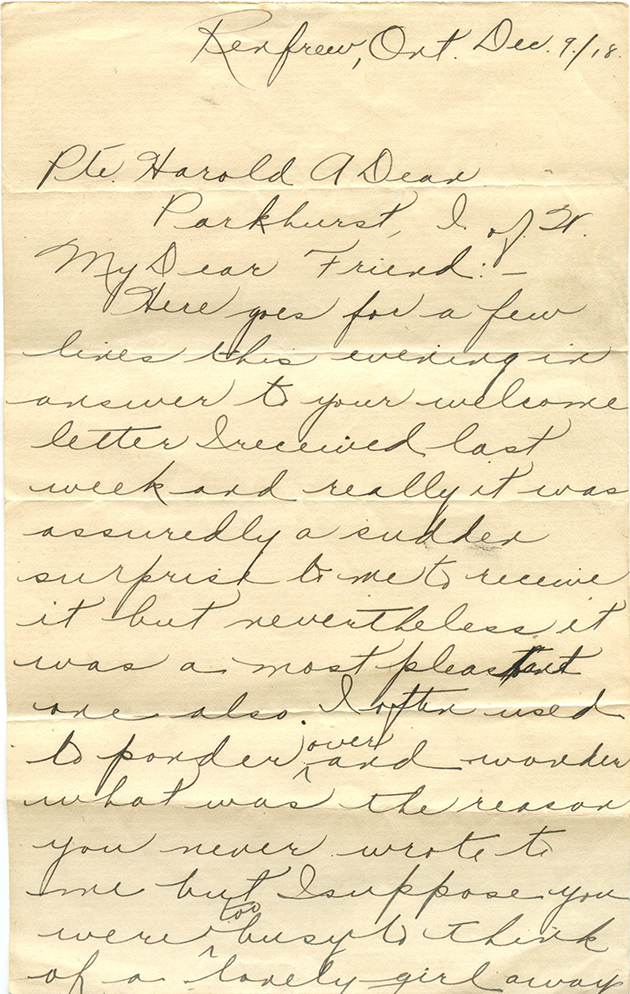 Renfrew, Ont. Dec. 9/18.
Pte. Harold A Dean
Parkhurst, I of W.
My Dear Friend:-
Here goes for a few
lines this evening in
answer to your welcome
letter I received last
week and really it was
assuredly a sudden
surprise to me to receive
it but nevertheless it
was a most pleasant
one also. I often used
to ponder over and wonder
what was the reason
you never wrote to
me but I suppose you
were too busy to think
of a lonely girl away